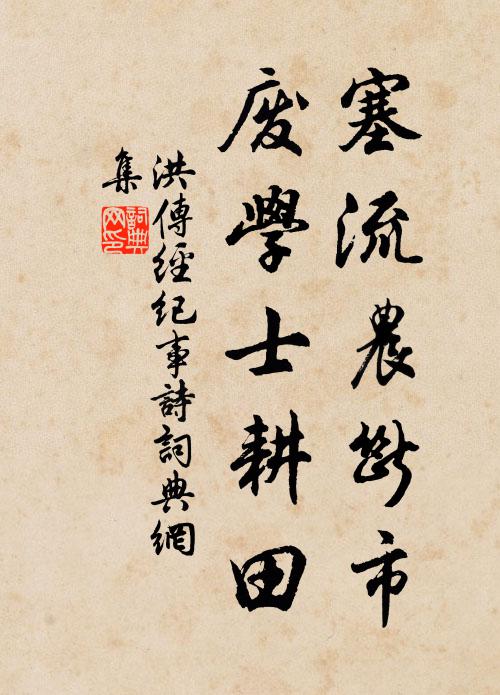 塞流農斷市
廢學士耕田
洪傳經紀事詩詞典網
集
詞典网印